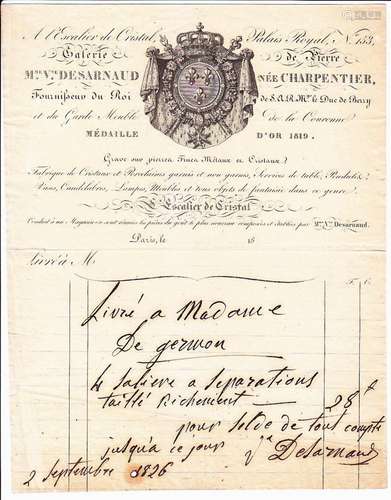 A l'Escalier de Cristal, Palais Royal, N.º 153,
Galerie de Pierre
M.ME V.VE DESARNAUD NÉE CHARPENTIER,
Fournisseur du Roi de S.A.R. M.gr le Duc de Berry
et du Garde Meuble de la Couronne
MÉDAILLE D'OR 1819.
Grave sur pierres Fines Métaux et Cristaux.
Fabrique de Cristaux et Porcelaines garnis et non garnis, Services de table, Pendules,
Vases, Candelabres, Lampes, Meubles et tous objets de fantaisie dans ce genre.
L'Escalier de Cristal
Conduit à un Magasin où sont réunies les pièces du goût le plus nouveau composées et établies par M.me V.ve Desarnaud.
Paris, le 18
Livré à M
F. C.
Livré a Madame
De germon
4 saliere a separations
taillé Richement 28 f
pour solde de tout compte
jusqu'a ce jour Vve Desarnaud
2 Septembre 1826